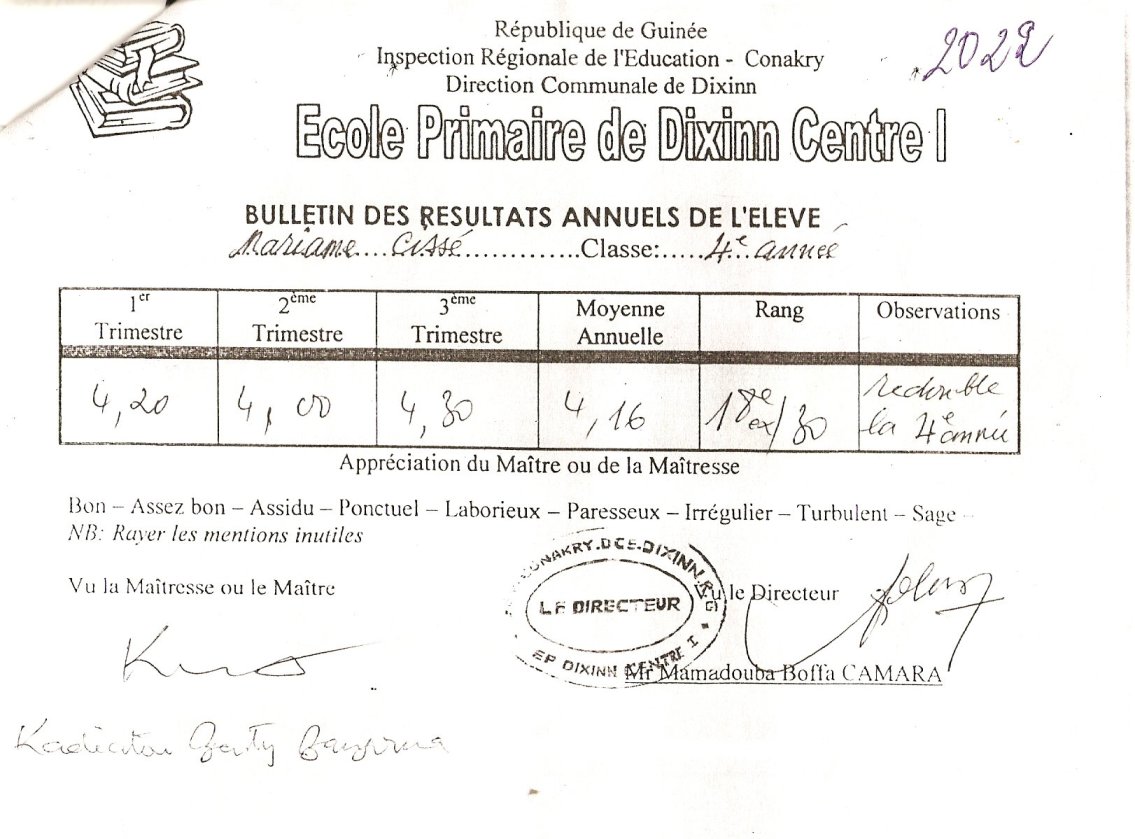 République de Guinée
2022
Inspection Régionale de l'Education - Conakry
Direction Communale de Dixinn
Ecole Primaire de Dixinn Centre I
BULLETIN DES RESULTATS ANNUELS DE L'ELEVE
Mariame.... Cissé.............Classe:.....4e année
1er Trimestre 2ème Trimestre 3ème Trimestre Moyenne Annuelle Rang Observations
4,20 4,00 4,30 4,16 18e ex/30 redouble la 4e année
Appréciation du Maître ou de la Maîtresse
Bon – Assez bon – Assidu – Ponctuel – Laborieux – Paresseux – Irrégulier – Turbulent – Sage –
NB: Rayer les mentions inutiles
Vu la Maîtresse ou le Maître
Vu le Directeur
CONAKRY.DCE.DIXINN
LE DIRECTEUR
EP DIXINN CENTRE I
Mr Mamadouba Boffa CAMARA